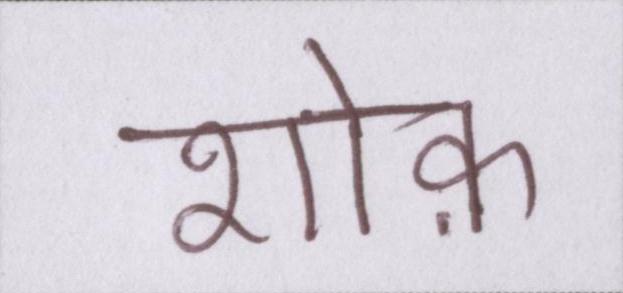 शोक़